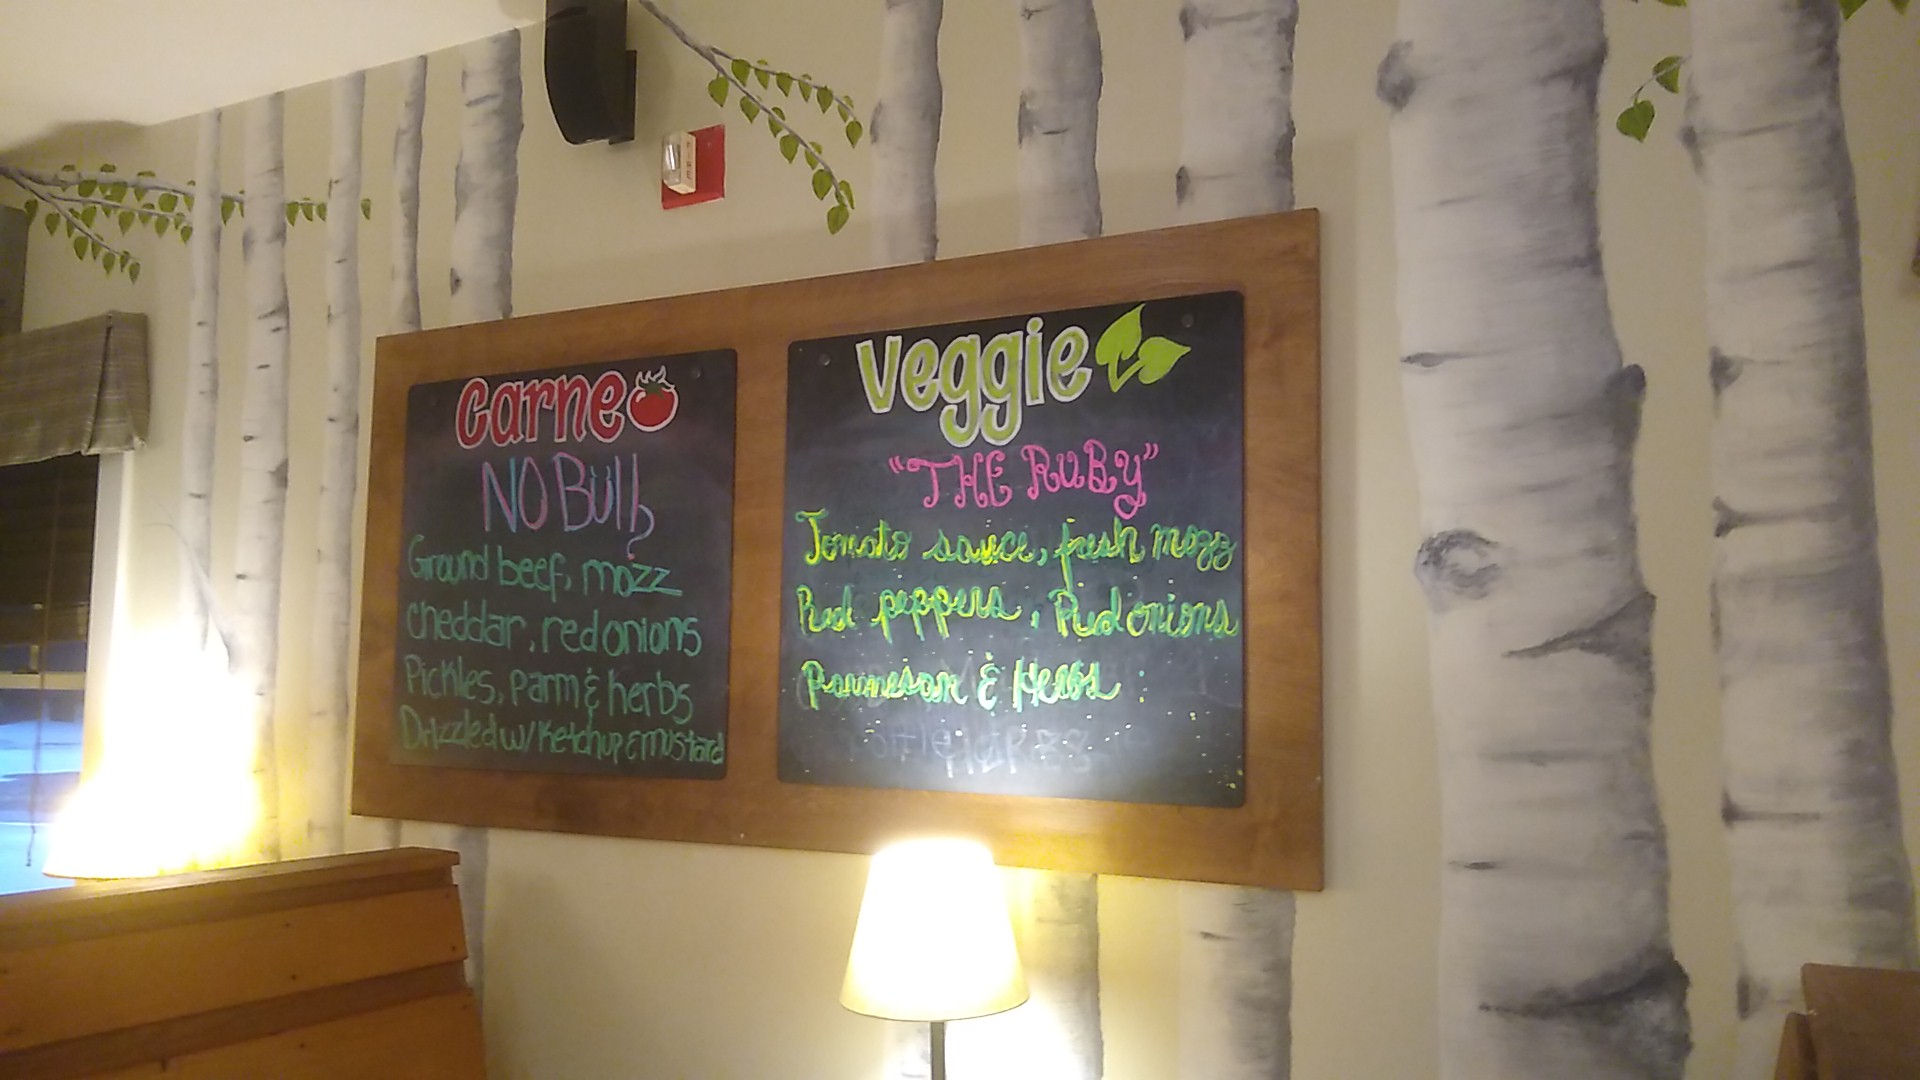 Carne
NO Bull
Ground beef, mozz
cheddar, red onions
Pickles, parm & herbs
Drizzled w/ Ketchup & mustard
Veggie
"THE RUBY"
Tomato sauce, fresh mozz
Red peppers, Red onions
Parmesan & Herbs